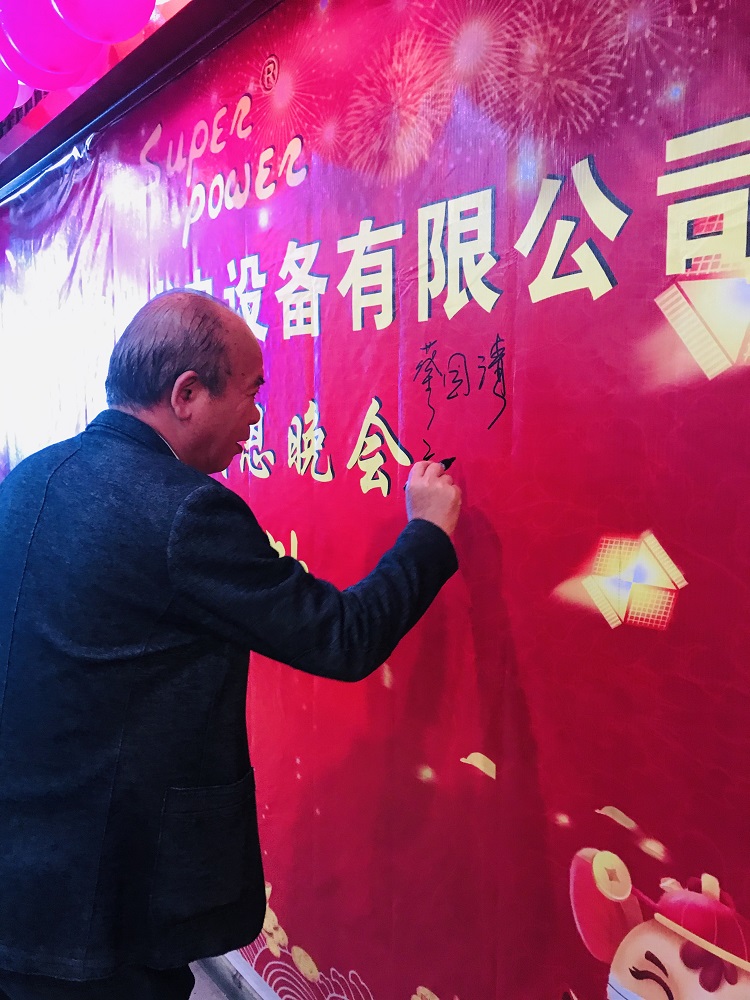 Super®
power
设备有限公司
蔡国清
恩晚会